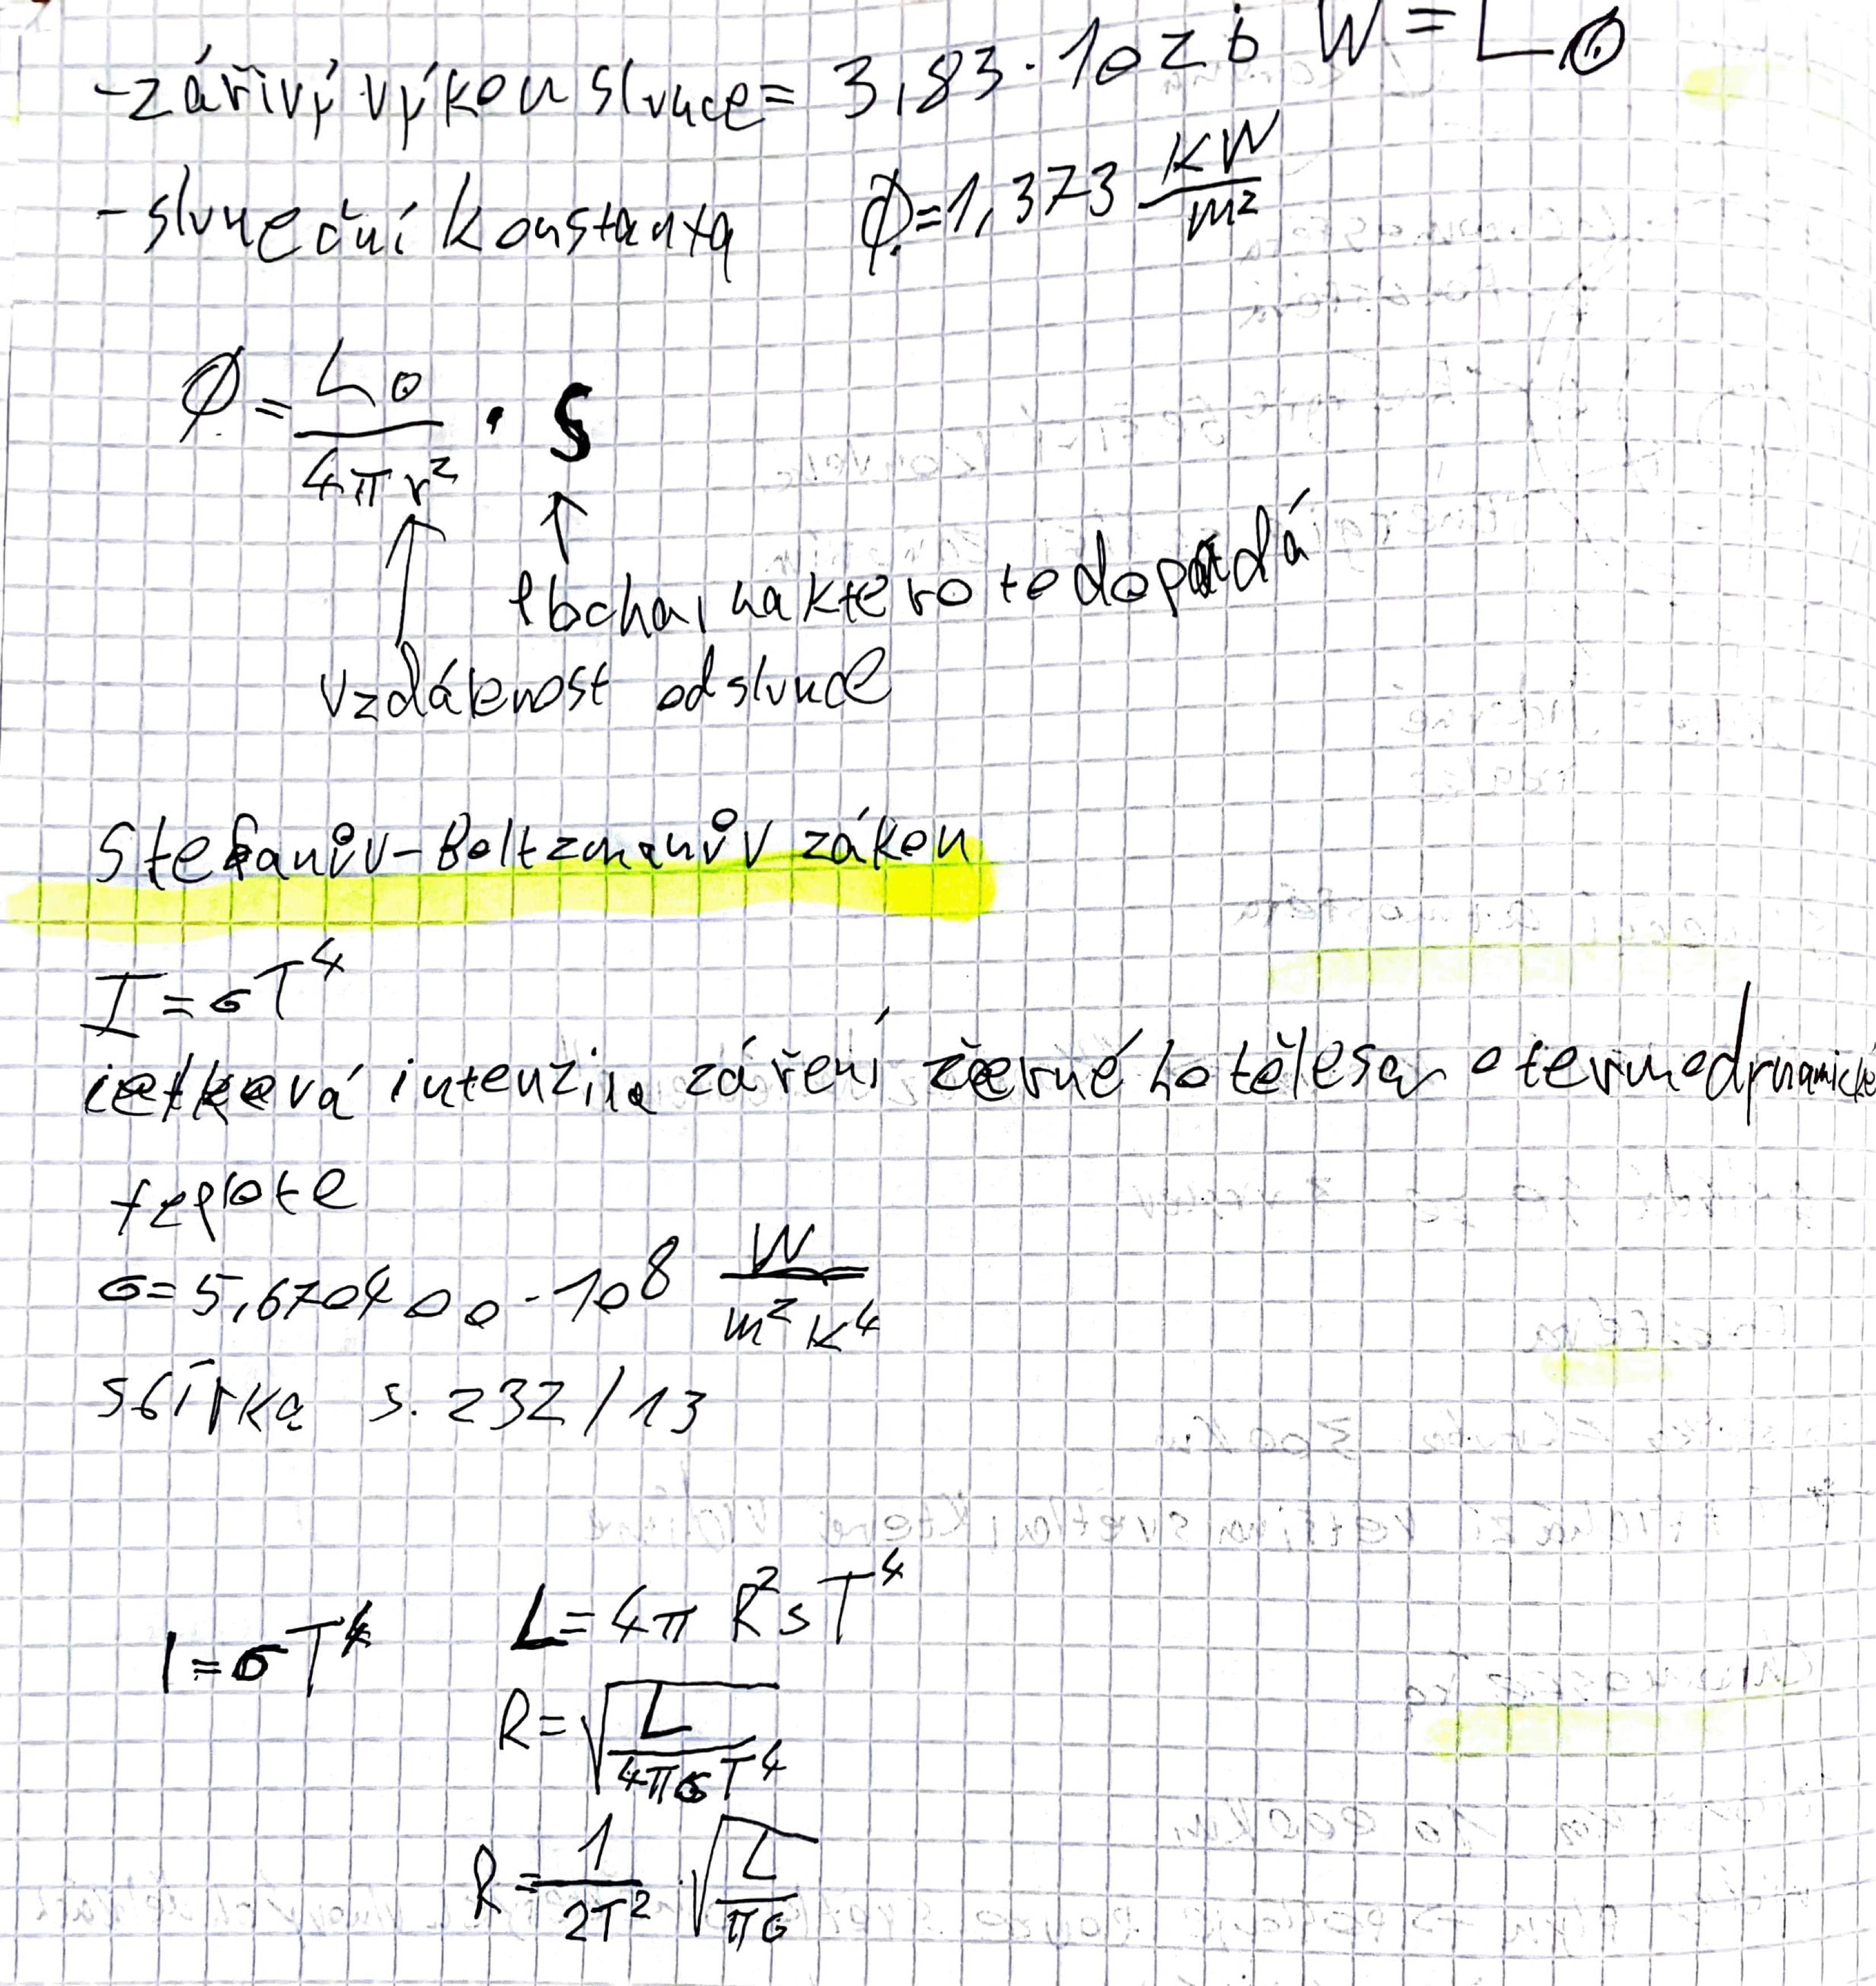 -zářivý výkon slunce = 3,83 · 10 26 W = L⊙
- sluneční konstanta Φ = 1,373 KW/m²
Φ = L⊙/4πr² · S
↑ ↑
plocha, na kterou to dopadá
vzdálenost od slunce
Stefanův-Boltzmanův zákon
I = σT⁴
celková intenzita záření černého tělesa o termodynamické
teplotě
σ = 5,670400 · 10 8 W/m² K⁴
sbírka s. 232/13
I = σT⁴ L = 4π R² s T⁴
R = √(L/4πσT⁴)
R = 1/2T² · √(L/πσ)